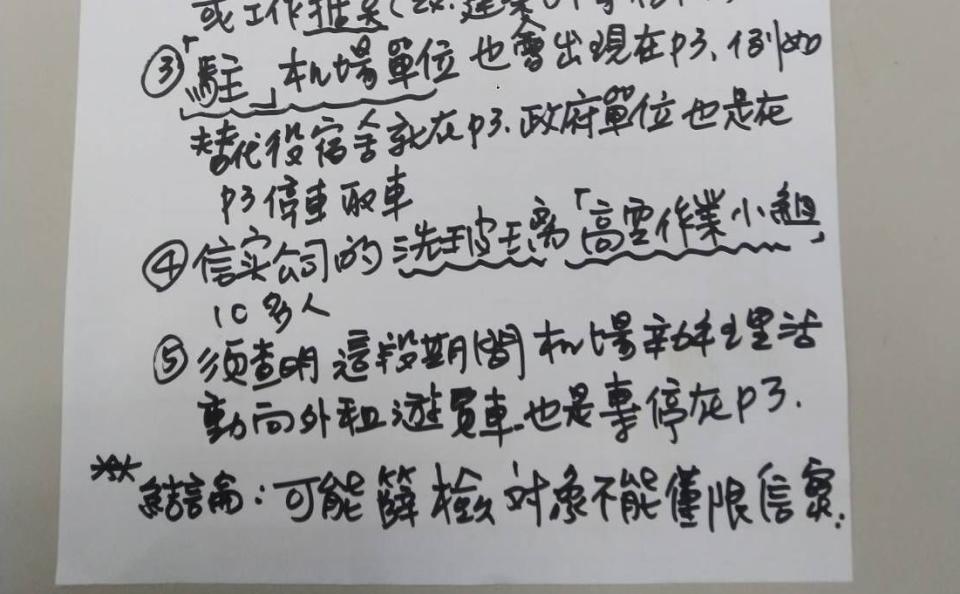 或工作推
③「駐」机場單位也會出現在P3、例如
替代役宿舍就在P3、政府單位也是在
P3停車取車
④信实公司的洗玻璃「高空作業小組」
10多人
⑤須查明這段期間机場辦理活
動向外租遊覽車也是專停在P3.
***結論:可能篩檢对象不能僅限信實.